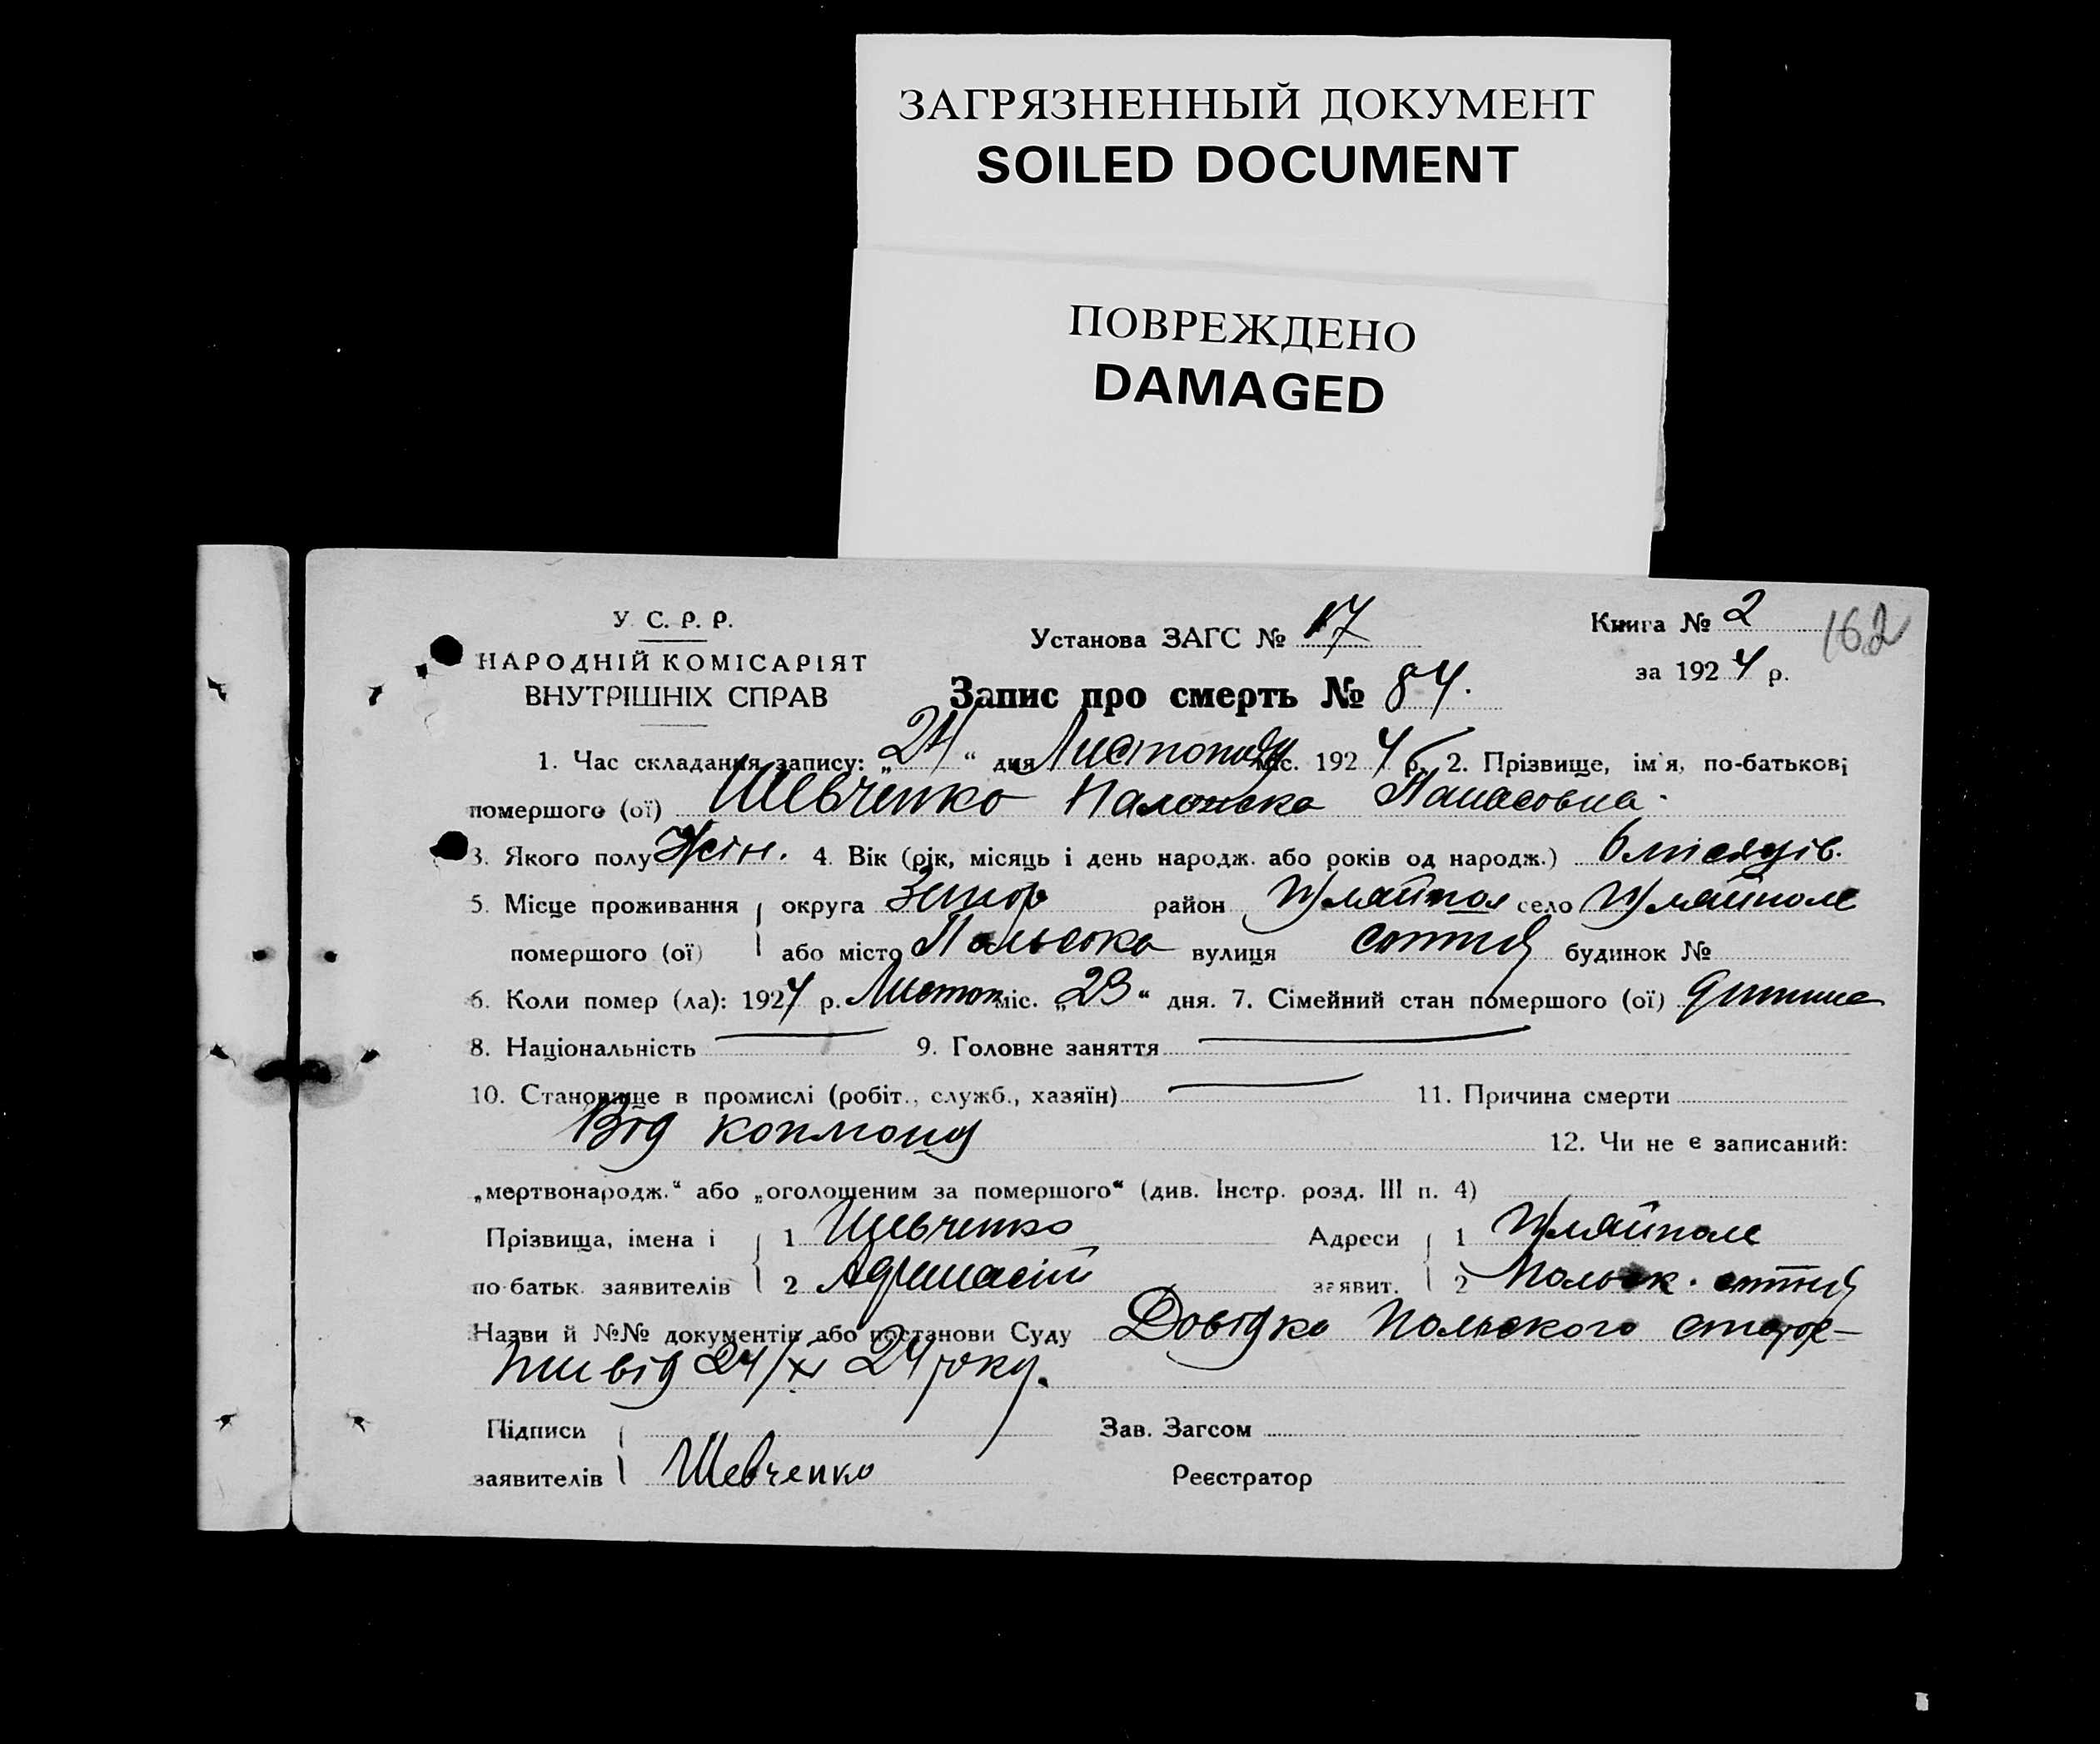 ЗАГРЯЗНЕННЫЙ ДОКУМЕНТ
SOILED DOCUMENT
ПОВРЕЖДЕНО
DAMAGED
У. С. Р. Р.
НАРОДНІЙ КОМІСАРІЯТ
ВНУТРІШНІХ СПРАВ
Установа ЗАГС № 17
Книга № 2
162
за 1924 р.
Запис про смерть № 84.
1. Час складання запису: „24“ дня Листопаду міс. 1924 р. 2. Прізвище, ім'я, по-батькові
помершого (ої) Шевченко Палажка Панасовна.
3. Якого полу Жін. 4. Вік (рік, місяць і день народж. або років од народж.) 6 місяців.
5. Місце проживання округа район село
помершого (ої) або місто Польска вулиця сотня будинок №
6. Коли помер (ла): 1924 р. Листоп міс. „23“ дня. 7. Сімейний стан помершого (ої) дитина
8. Національність 9. Головне заняття
10. Становище в промислі (робіт., служб., хазяїн) 11. Причина смерти
Від 12. Чи не є записаний:
„мертвонародж.“ або „оголошеним за помершого“ (див. Інстр. розд. III п. 4)
Прізвища, імена і 1 Шевченко Адреси 1
по-батьк. заявителів 2 заявит. 2 Польск. сотня
Назви й №№ документів або постанови Суду Довідка Польского
від 24/XI 24 року.
Підписи Зав. Загсом
заявителів Шевченко Реєстратор